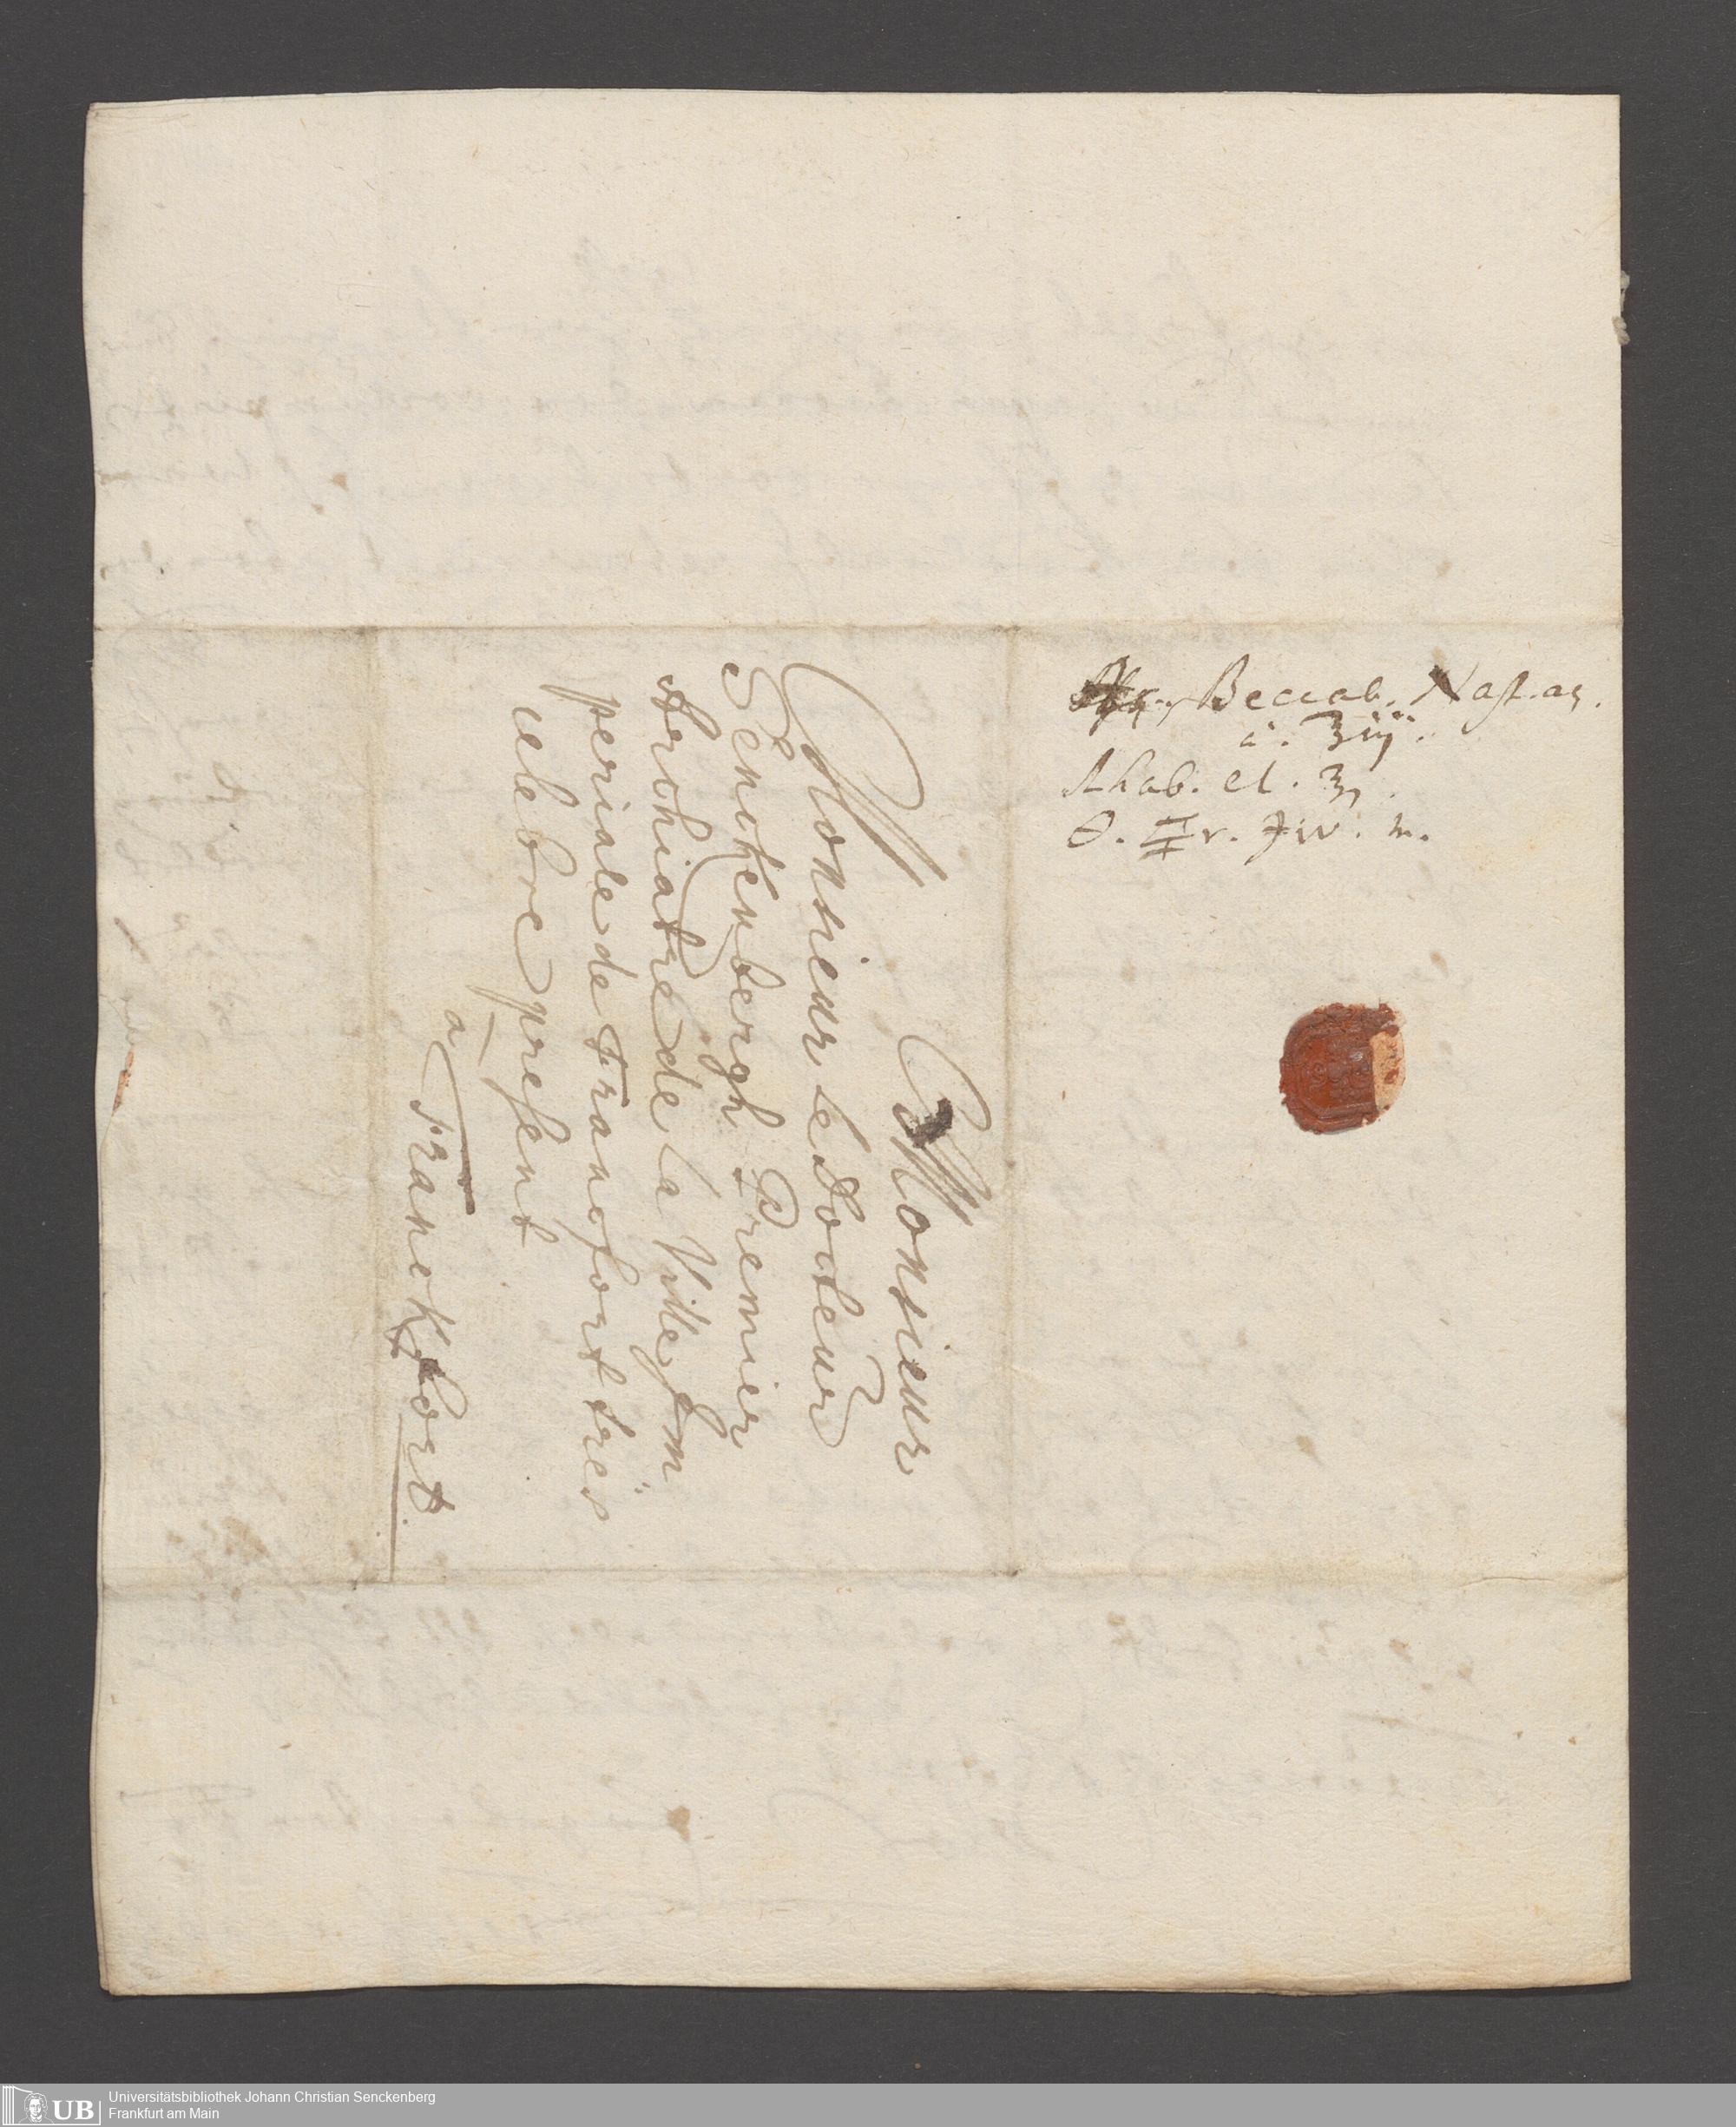 Monsieur
Monsieur le Docteur
Senckenbergh Premier
Archiatre de la Ville Im
periale de Francfort très
celebre present
à
Franckfort.
Beccab. Nast. aq.
a. ʒiij.
Rhab. el. ʒ
Universitätsbibliothek Johann Christian Senckenberg
Frankfurt am Main
UB